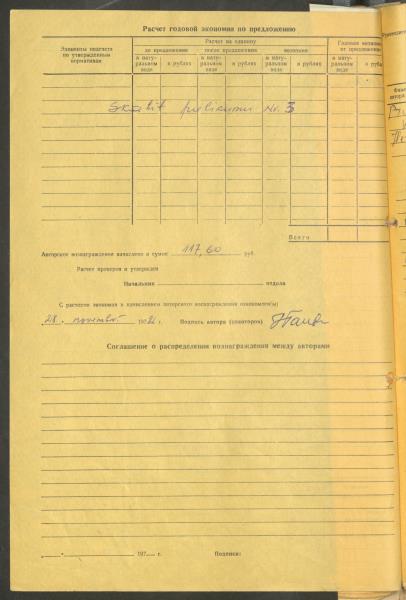 Расчет годовой экономии по предложению
Элементы подсчета по утвержденным нормативам
Расчет на единицу
до предложения
после предложения
экономия
в натуральном виде
в рублях
в натуральном виде
в рублях
в натуральном виде
в рублях
Годовая эконом
от предложения
в натуральном виде
в рубл
Skatīt pielikumu Nr. 3
Всего
Авторское вознаграждение начислено в сумме 117,60 руб.
Расчет проверен и утвержден
Начальник отдела
С расчетом экономии и начислением авторского вознаграждения ознакомлен(ы)
28. novembrī 198 г. Подпись автора (соавторов)
Соглашение о распределении вознаграждения между авторами
197 г. Подписи: